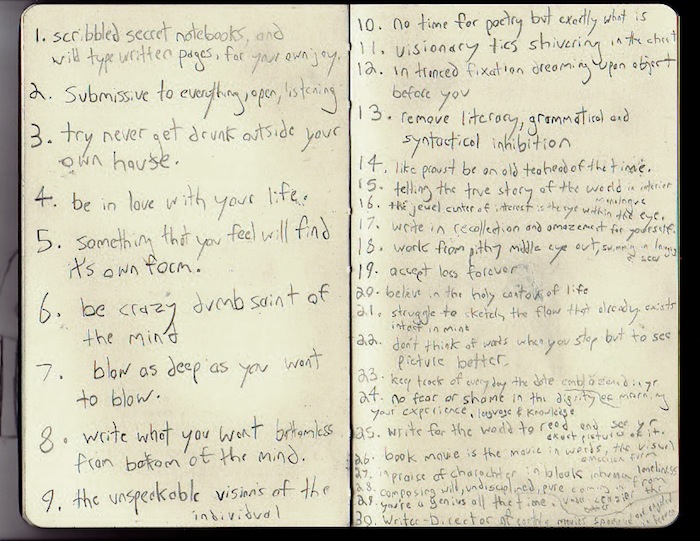 1. scribbled secret notebooks, and
wild type written pages, for your own joy.
2. Submissive to everything, open, listening
3. try never get drunk outside your
own house.
4. be in love with your life.
5. something that you feel will find
it's own form.
6. be crazy dumb saint of
the mind
7. blow as deep as you want
to blow.
8. write what you want bottomless
from bottom of the mind.
9. the unspeakable visions of the
individual
10. no time for poetry but exactly what is
11. visionary tics shivering in the chest
12. in tranced fixation dreaming upon object
before you
13. remove literary, grammatical and
syntactical inhibition
14. like proust be an old teahead of the time.
15. telling the true story of the world in interior
monologue
16. the jewel center of interest is the eye within the eye.
17. write in recollection and amazement for yourself.
18. work from pithy middle eye out, swimming in language
sea
19. accept loss forever
20. believe in the holy contour of life
21. struggle to sketch the flow that already exists
intact in mind
22. don't think of words when you stop but to see
picture better.
23. keep track of everyday the date emblazoned in yr
morning
24. no fear or shame in the dignity of
your experience, language & knowledge.
25. write for the world to read and see yr
exact pictures of it.
26. book movie is the movie in words, the visual
american form
27. in praise of character in bleak inhuman loneliness
28. composing wild, undisciplined, pure coming in from
29. you're a genius all the time.
30. Writer-Director of earthly movies